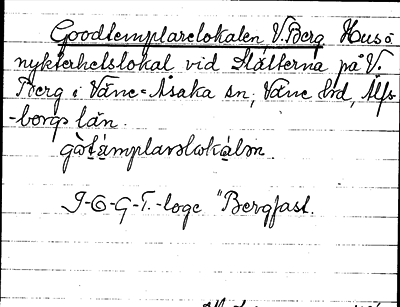 Goodtemplarelokalen, V. Berg Hus o
nykterhetslokal vid Slätterna på V.
Berg i Väne-Åsaka sn, Väne hd, Älfs
-borgs län.
I-O-G-T.-loge "Bergfast.